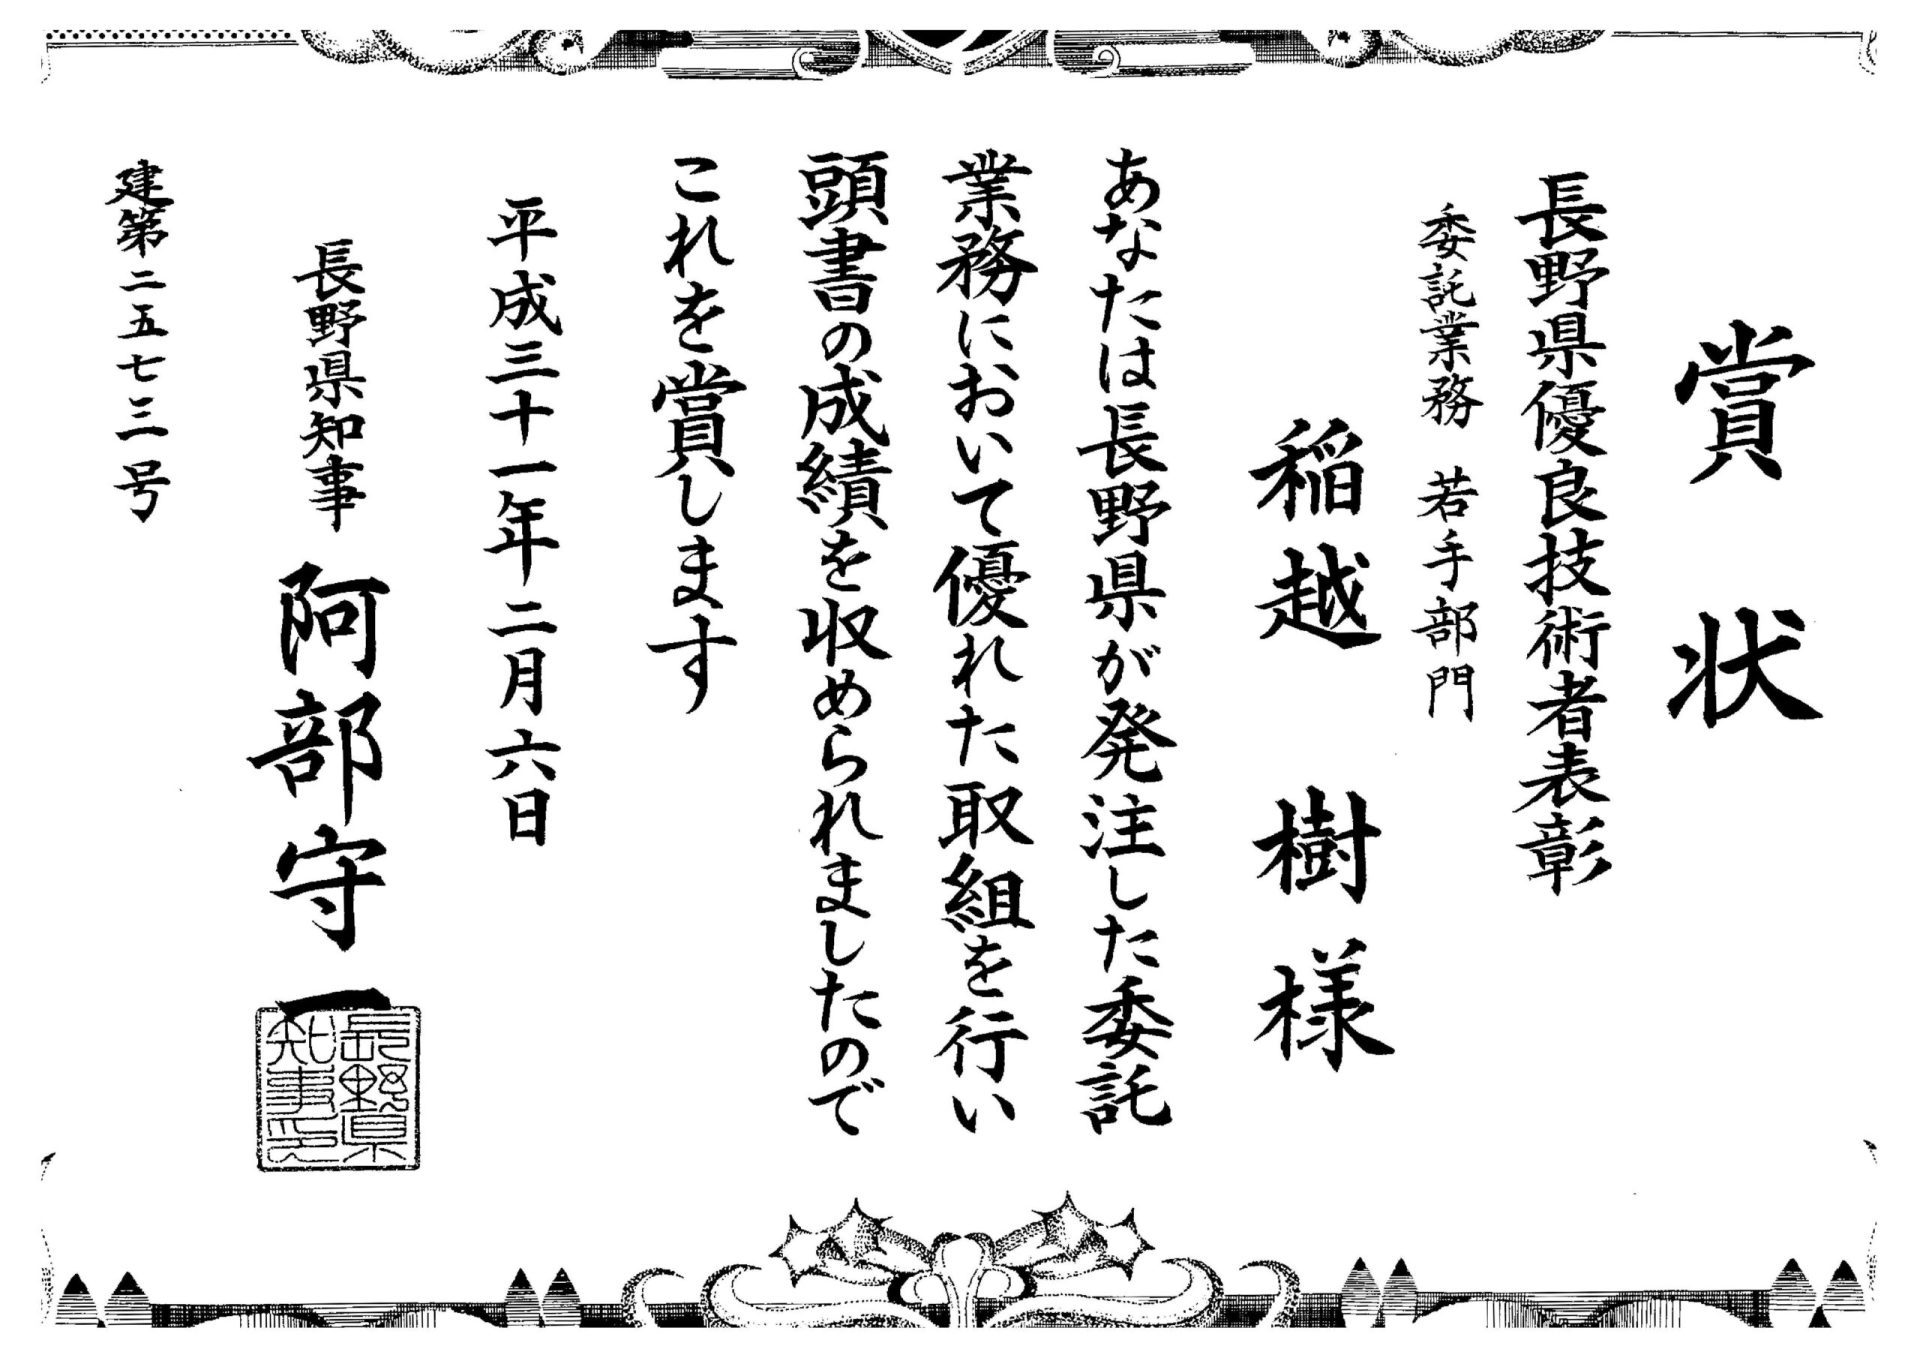 賞状
長野県優良技術者表彰
委託業務 若手部門
稲越 樹様
あなたは長野県が発注した委託
業務において優れた取組を行い
頭書の成績を収められましたので
これを賞します
平成三十一年二月六日
長野県知事 阿部守一
長野県
知事印
建第二五七三号